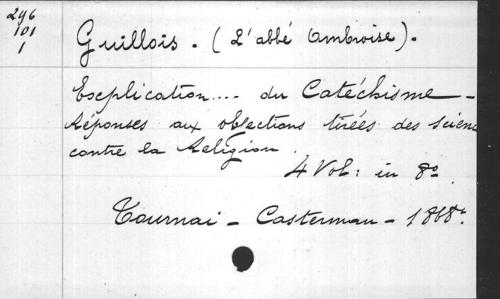 296
101
1
Guillois. (L'abbé Ambroise).
Explication.... du Catéchisme -
Réponses aux objections tirées des scien
contre la Religion.
4 Vol: in 8o.
Tournai - Casterman - 1868.